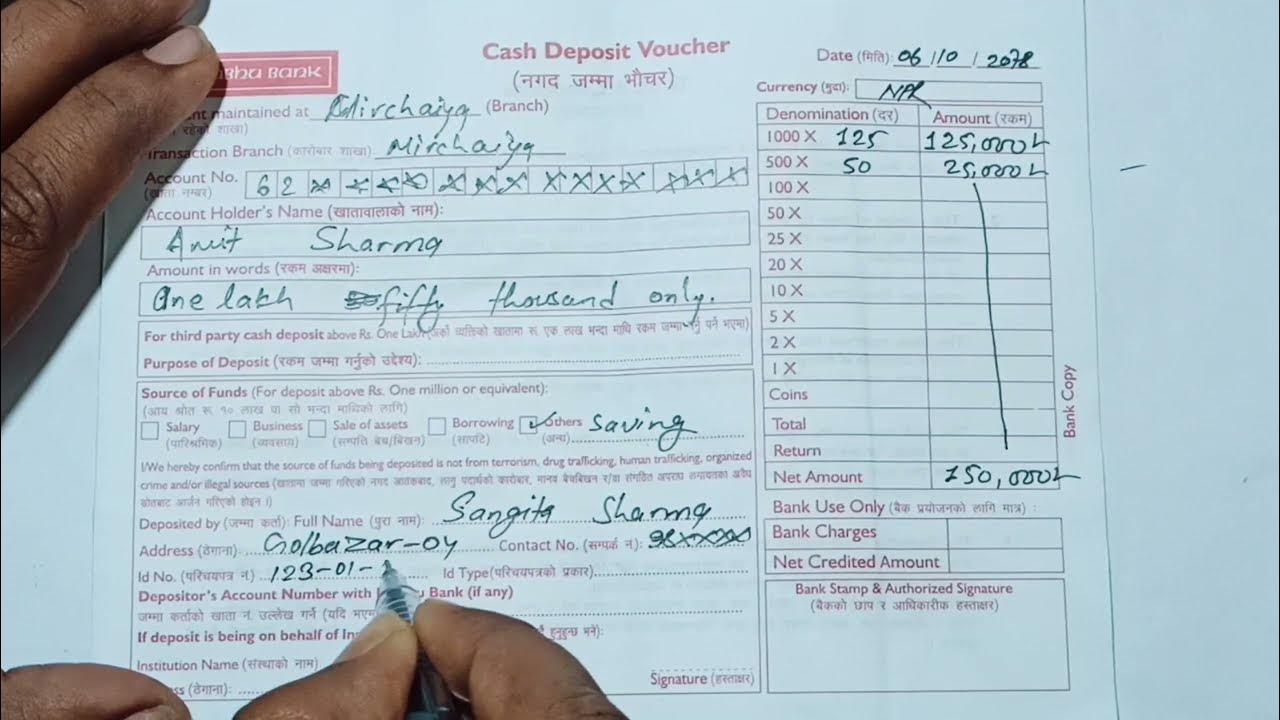 BHU BANK
Cash Deposit Voucher
(नगद जम्मा भौचर)
Date (मिति): 06/10/2078
Currency (मुद्रा): NPR
nt maintained at Mirchaiya (Branch)
रहेको शाखा)
Transaction Branch (कारोबार शाखा) Mirchaiya
Account No. 62xxxxxxxxxxxxxx
(खाता नम्बर)
Account Holder's Name (खातावालाको नाम):
Amit Sharma
Amount in words (रकम अक्षरमा):
One lakh fifty thousand only.
For third party cash deposit above Rs. One Lakh (अर्को व्यक्तिको खातामा रु एक लाख भन्दा माथि रकम जम्मा गर्नु पर्ने भएमा)
Purpose of Deposit (रकम जम्मा गर्नुको उद्देश्य):
Source of Funds (For deposit above Rs. One million or equivalent):
(आय श्रोत रू. १० लाख वा सो भन्दा माथिको लागि)
Salary Business Sale of assets Borrowing Others Saving
(पारिश्रमिक) (व्यवसाय) (सम्पति बेच/बिखन) (सापटि) (अन्य)
I/We hereby confirm that the source of funds being deposited is not from terrorism, drug trafficking, human trafficking, organized
crime and/or illegal sources (खातामा जम्मा गरिएको नगद आतंकवाद, लागु पदार्थको कारोबार, मानव बेचबिखन र/वा संगठित अपराध लगायतका अवैध
श्रोतबाट आर्जन गरिएको होइन ।)
Deposited by (जम्मा कर्ता): Full Name (पुरा नाम): Sangita Sharma
Address (ठेगाना): Golbazar-04 Contact No. (सम्पर्क नं): 98xxxxxx
Id No. (परिचयपत्र नं) 123-01- Id Type (परिचयपत्रको प्रकार)
Depositor's Account Number with Bank (if any)
जम्मा कर्ताको खाता नं. उल्लेख गर्ने (यदि भएमा
If deposit is being on behalf of Ins हुनुहुन्छ भने):
Institution Name (संस्थाको नाम)
ss (ठेगाना):
Signature (हस्ताक्षर)
Denomination (दर) Amount (रकम)
1000 X 125 125,000/-
500 X 50 25,000/-
100 X
50 X
25 X
20 X
10 X
5 X
2 X
1 X
Coins
Total
Return
Net Amount 150,000/-
Bank Use Only (बैंक प्रयोजनको लागि मात्र) :
Bank Charges
Net Credited Amount
Bank Stamp & Authorized Signature
(बैंकको छाप र आधिकारीक हस्ताक्षर)
Bank Copy